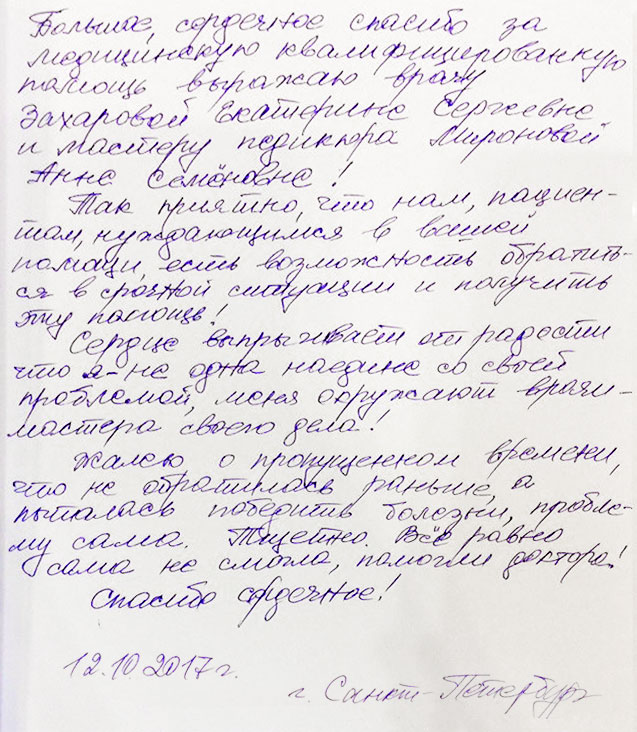 Большое, сердечное спасибо за
медицинскую квалифицированную
помощь выражаю врачу
Захаровой Екатерине Сергеевне
и мастеру педикюра Мироновой
Анне Семёновне!
Так приятно, что нам, пациен-
там, нуждающимся в вашей
помощи, есть возможность обратить-
ся в срочной ситуации и получить
эту помощь!
Сердце выпрыгивает от радости
что я - не одна наедине со своей
проблемой, меня окружают врачи-
мастера своего дела!
Жалею о пропущенном времени,
что не обратилась раньше, а
пыталась победить болезни, пробле-
му сама. Тщетно. Всё равно
сама не смогла, помогли доктора!
Спасибо сердечное!
12.10.2017 г.
г. Санкт-Петербург